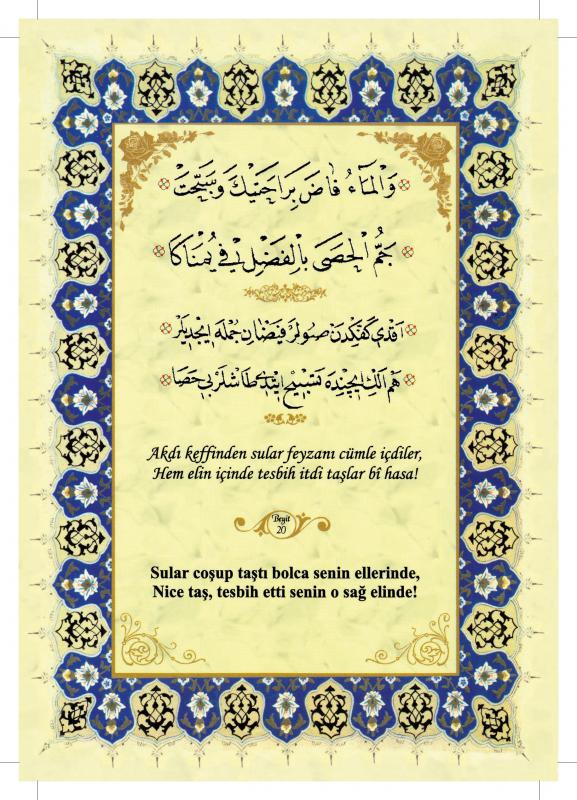 وَالْمَاءُ فَاضَ بِرَاحَتَيْكَ وَسَبَّحَتْ
جَمُّ الْحَصَى بِالْفَضْلِ فِي يُمْنَاكَا
اقدى كفڭدن صولر فيضان جمله ايچديلر
هم الڭ ايچنده تسبيح ايتدى طاشلر بى حصا
Akdı keffinden sular feyzanı cümle içdiler,
Hem elin içinde tesbih itdi taşlar bî hasa!
Beyit
20
Sular coşup taştı bolca senin ellerinde,
Nice taş, tesbih etti senin o sağ elinde!